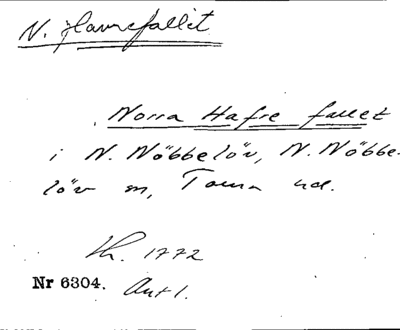 N. Havrefallet
Norra Hafre fallet
i N. Nöbbelöv, N. Nöbbe-
löv sn, Torna hd.
1772
Nr 6304.